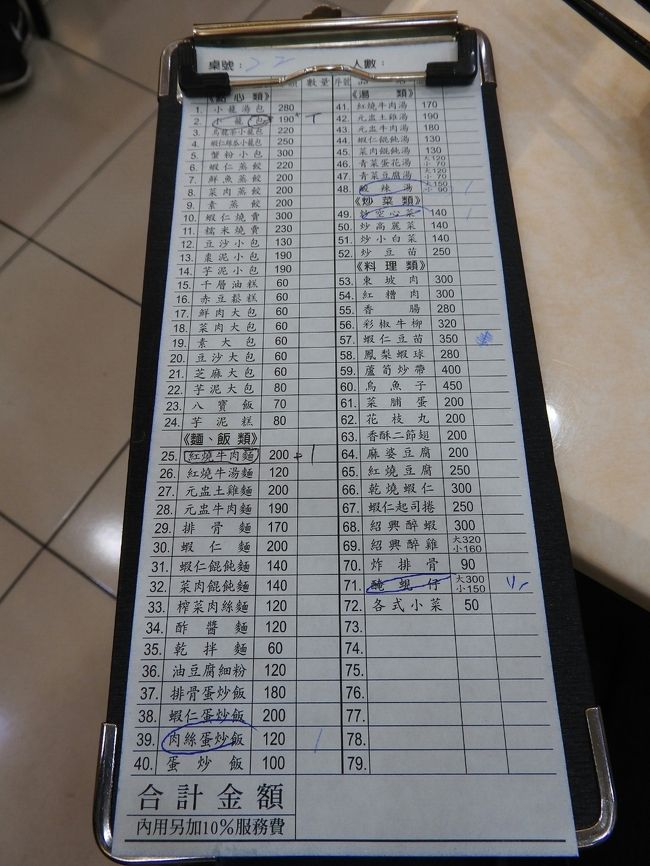 桌號：22 人數：
數量 序號
《點心類》
1. 小籠湯包 280
2. 小籠包 190
3. 烏龍茶小籠包 220
4. 蝦仁絲瓜小籠包 250
5. 蟹粉小包 300
6. 蝦仁蒸餃 220
7. 鮮魚蒸餃 200
8. 菜肉蒸餃 200
9. 素蒸餃 200
10. 蝦仁燒賣 300
11. 糯米燒賣 230
12. 豆沙小包 130
13. 棗泥小包 190
14. 芋泥小包 190
15. 千層油糕 60
16. 赤豆鬆糕 60
17. 鮮肉大包 60
18. 菜肉大包 60
19. 素大包 60
20. 豆沙大包 60
21. 芝麻大包 60
22. 芋泥大包 80
23. 八寶飯 70
24. 芋泥糕 80
《麵、飯類》
25. 紅燒牛肉麵 200 1
26. 紅燒牛湯麵 120
27. 元盅土雞麵 200
28. 元盅牛肉麵 190
29. 排骨麵 170
30. 蝦仁麵 200
31. 蝦仁餛飩麵 140
32. 菜肉餛飩麵 140
33. 榨菜肉絲麵 120
34. 酢醬麵 120
35. 乾拌麵 60
36. 油豆腐細粉 120
37. 排骨蛋炒飯 180
38. 蝦仁蛋炒飯 200
39. 肉絲蛋炒飯 120 1
40. 蛋炒飯 100
《湯類》
41. 紅燒牛肉湯 170
42. 元盅土雞湯 190
43. 元盅牛肉湯 180
44. 蝦仁餛飩湯 130
45. 菜肉餛飩湯 130
46. 青菜蛋花湯 大120 小70
47. 青菜豆腐湯 大120 小70
48. 酸辣湯 大150 小90 1
《炒菜類》
49. 炒空心菜 140 1
50. 炒高麗菜 140
51. 炒小白菜 140
52. 炒豆苗 250
《料理類》
53. 東坡肉 300
54. 紅糟肉 300
55. 香腸 280
56. 彩椒牛柳 320
57. 蝦仁豆苗 350
58. 鳳梨蝦球 280
59. 蘆筍炒帶 400
60. 烏魚子 450
61. 菜脯蛋 200
62. 花枝丸 200
63. 香酥二節翅 200
64. 麻婆豆腐 200
65. 紅燒豆腐 250
66. 乾燒蝦仁 300
67. 蝦仁起司捲 250
68. 紹興醉蝦 300
69. 紹興醉雞 大320 小160
70. 炸排骨 90
71. 醃蜆仔 大300 小150
72. 各式小菜 50
73.
74.
75.
76.
77.
78.
79.
合計金額
內用另加10%服務費